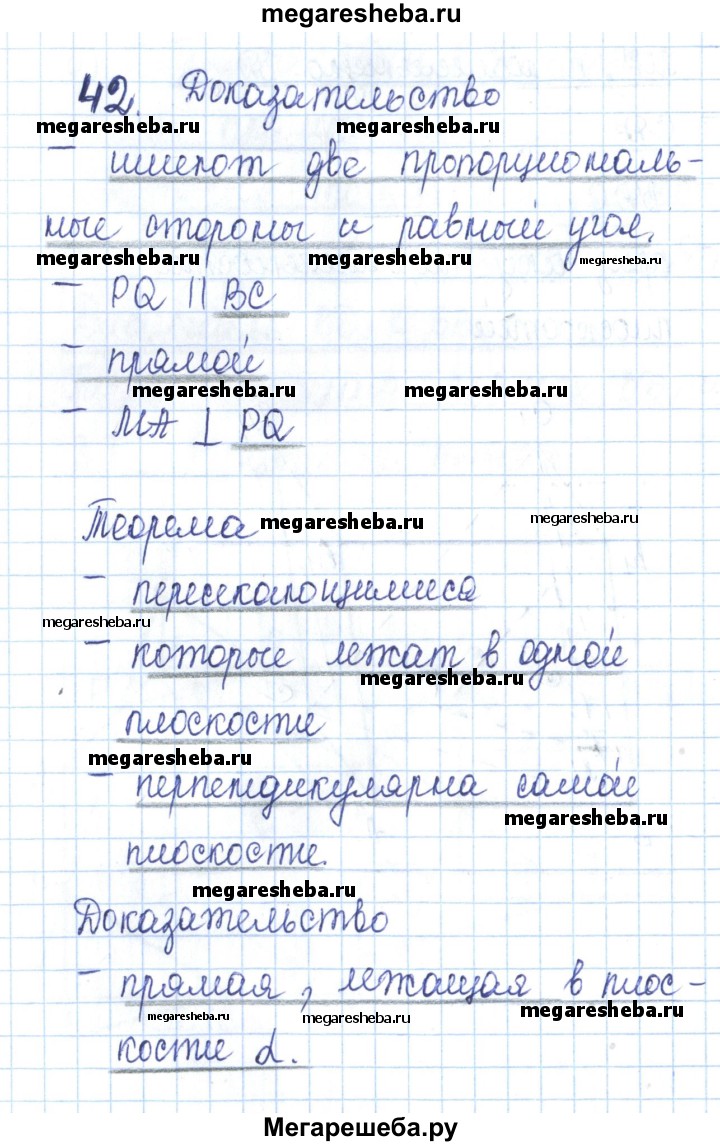 megaresheba.ru
42. Доказательство
megaresheba.ru megaresheba.ru
– имеют две пропорциональ-
ные стороны и равный угол.
megaresheba.ru megaresheba.ru megaresheba.ru
– PQ || BC
– прямой
megaresheba.ru megaresheba.ru
– MA ⊥ PQ
Теорема megaresheba.ru megaresheba.ru
– пересекающимися
megaresheba.ru
– которые лежат в одной
megaresheba.ru
плоскости
megaresheba.ru
– перпендикулярна самой
megaresheba.ru
плоскости.
megaresheba.ru
Доказательство
– прямая, лежащая в плос-
megaresheba.ru megaresheba.ru megaresheba.ru
кости α.
Мегарешеба.ру